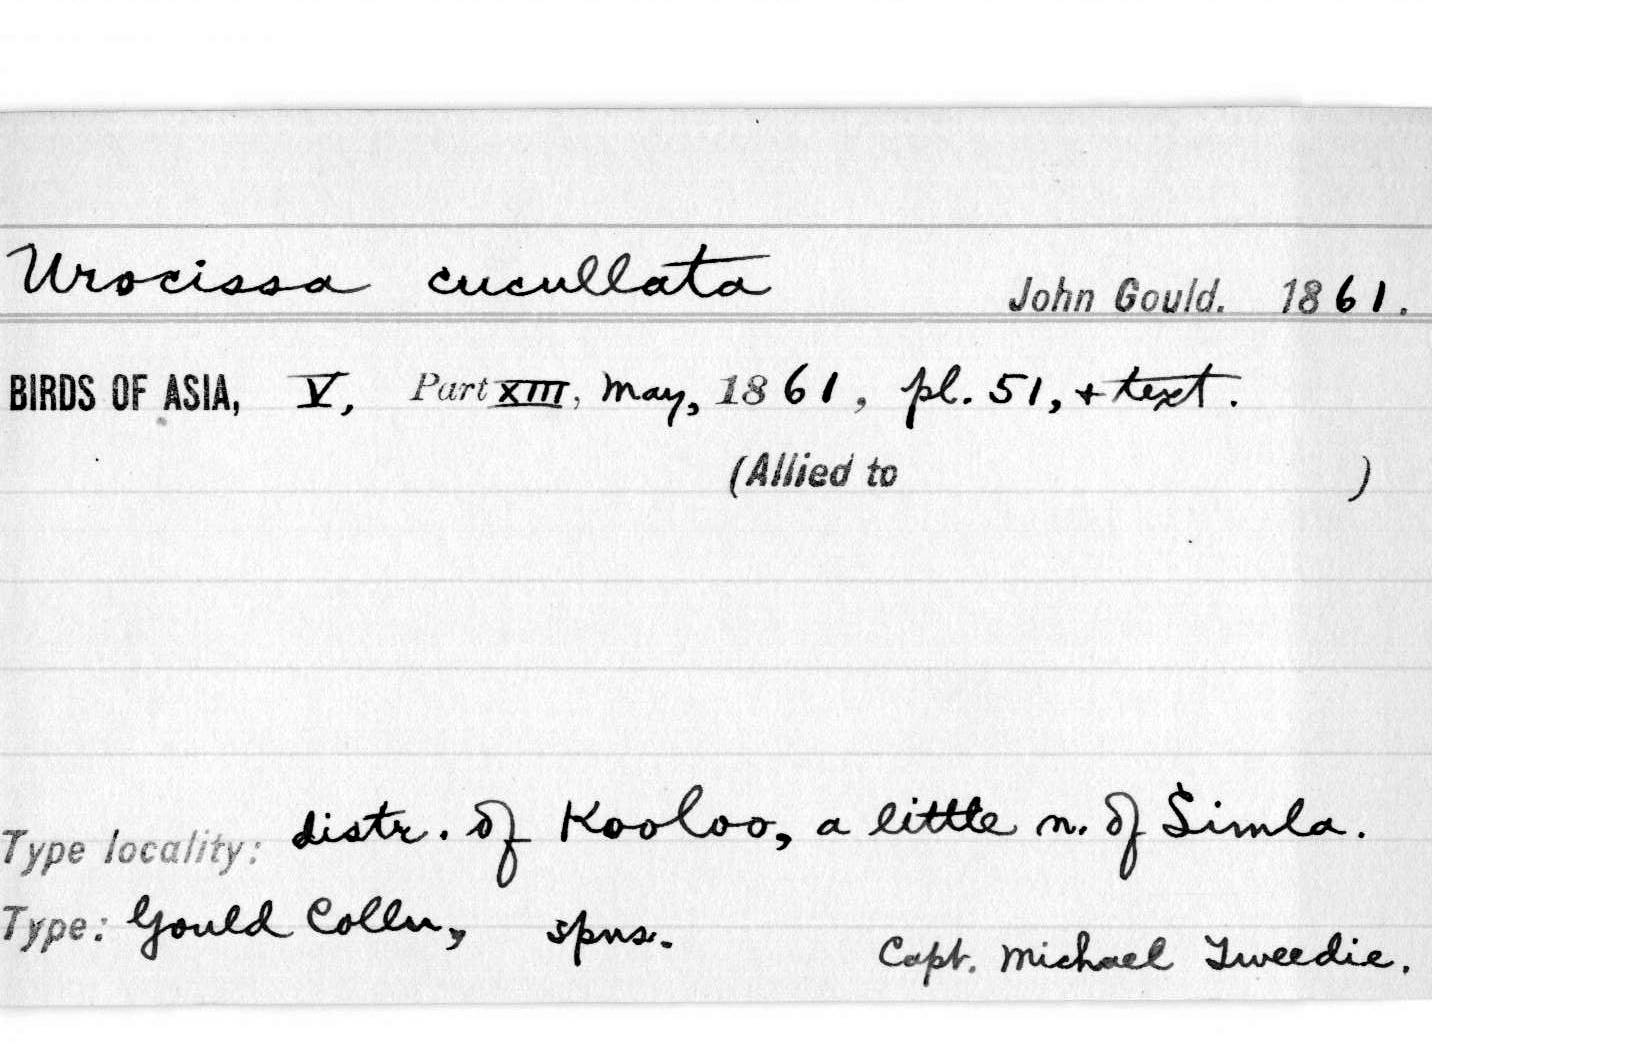 Urocissa cucullata John Gould. 1861.
BIRDS OF ASIA, V, Part XIII, May, 1861, pl. 51, + text.
(Allied to )
Type locality: distr. of Kooloo, a little n. of Simla.
Type: Gould Colln, spns. Capt. Michael Tweedie.